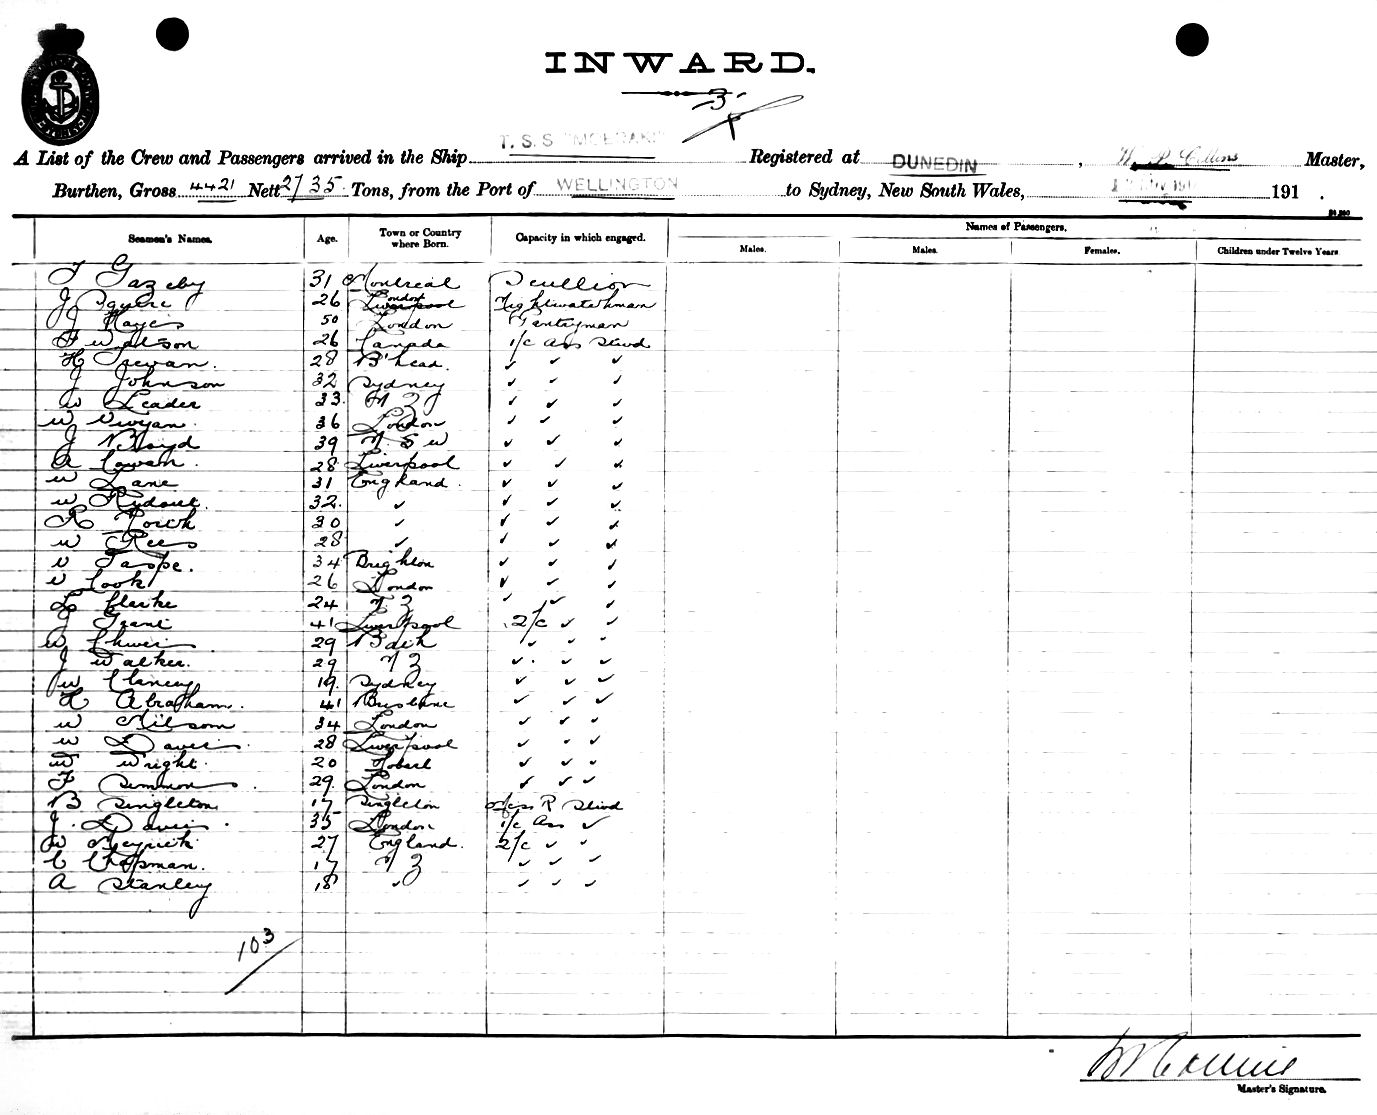 INWARD.
3
A List of the Crew and Passengers arrived in the Ship T. S. S "MOERAKI" Registered at DUNEDIN, Master,
Burthen, Gross 4421 Nett 2735 Tons, from the Port of WELLINGTON to Sydney, New South Wales, 191 .
Seamen's Names. Age. Town or Country where Born. Capacity in which engaged. Names of Passengers.
Males. Males. Females. Children under Twelve Years
F Gazeby 31 Montreal Scullion
J Squire 26 London Liverpool Nightwatchman
J Hayes 50 London Pantryman
F Watson 26 Canada 1/c Ass Stwd
H 28 B'head. ✓ ✓ ✓
J Johnson 32 Sydney ✓ ✓ ✓
W Leader 33 N Z ✓ ✓ ✓
W Vivyan. 36 London ✓ ✓ ✓
J Bloyd 39 N. S W ✓ ✓ ✓
A Cowan. 28 Liverpool ✓ ✓ ✓
W Lane 31 England. ✓ ✓ ✓
W Rydout. 32. ✓ ✓ ✓ ✓
R 30 ✓ ✓ ✓ ✓
W Rees 28 ✓ ✓ ✓ ✓
34 Brighton ✓ ✓ ✓
Cook 26 London ✓ ✓ ✓
L Clarke 24 N Z ✓ ✓ ✓
J Grant 41 Liverpool 2/c ✓ ✓
W 29 Bath ✓ ✓ ✓
J Walker. 29 N Z ✓ ✓ ✓
W Clancy 19. Sydney ✓ ✓ ✓
H Abraham. 41 Brisbane ✓ ✓ ✓
W Milsom 34 London ✓ ✓ ✓
W Davis. 28 Liverpool ✓ ✓ ✓
W Wright. 20 Hobart ✓ ✓ ✓
F Simmons. 29. London ✓ ✓ ✓
B Singleton 17 Singleton R Stwd
J. Davis. 35 London 1/c Ass ✓
W Meyrick 27 England. 2/c ✓ ✓
C Chapman. 17 N Z ✓ ✓ ✓
A Stanley 18 ✓ ✓ ✓ ✓
103
Master's Signature.